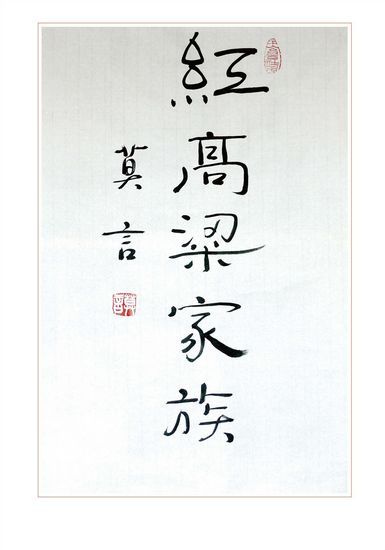 红高粱家族
莫言